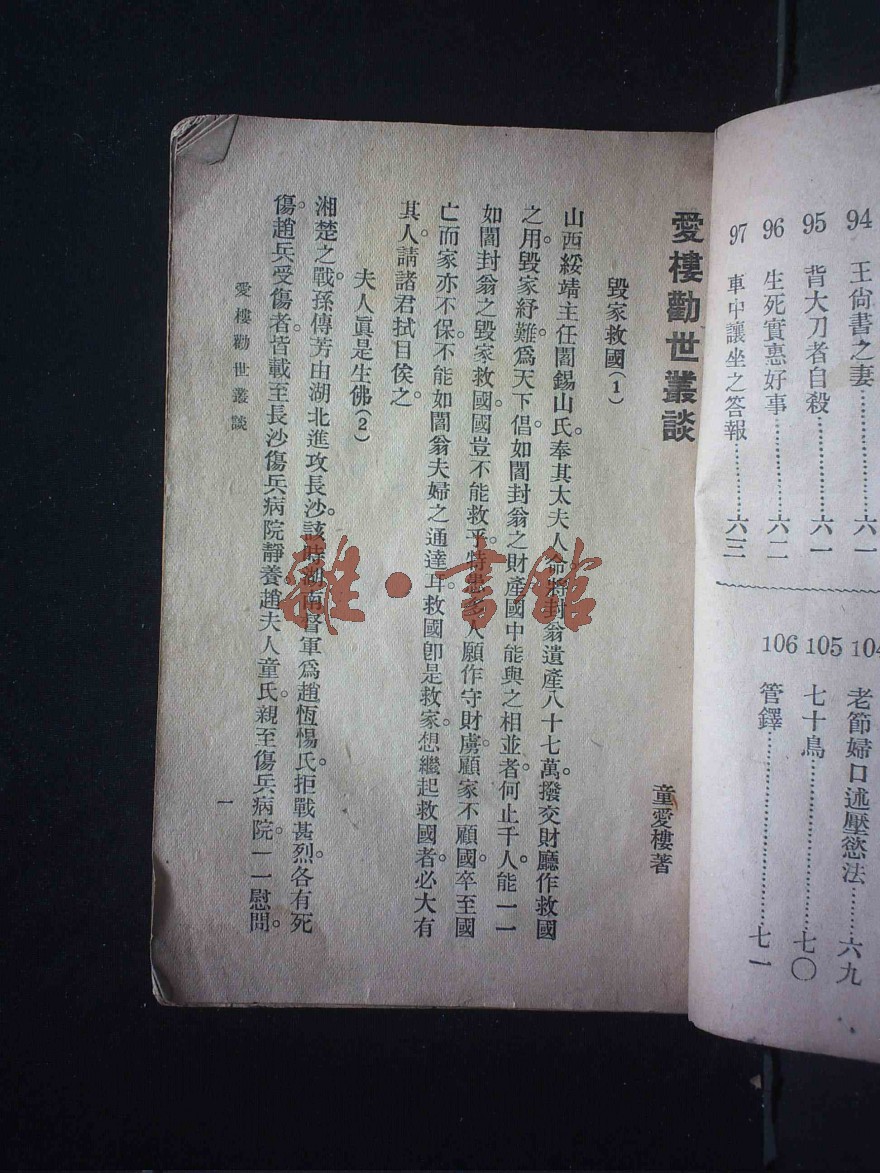 94 王尙書之妻………六一
95 背大刀者自殺………六一
96 生死實惠好事………六二
97 車中讓坐之答報………六三
104 老節婦口述壓慾法………六九
105 七十鳥………七〇
106 管鐸………七一
愛樓勸世叢談
童愛樓著
毀家救國(1)
山西綏靖主任閻錫山氏。奉其太夫人命。將封翁遺產八十七萬。撥交財廳作救國
之用。毀家紓難。爲天下倡。如閻封翁之財產。國中能與之相並者。何止千人。能一一
如閻封翁之毀家救國。國豈不能救乎。特患多人願作守財虜。顧家不顧國。卒至國
亡而家亦不保。不能如閻翁夫婦之通達耳。救國卽是救家。想繼起救國者。必大有
其人。請諸君拭目俟之。
夫人眞是生佛(2)
湘楚之戰。孫傳芳由湖北進攻長沙。該時湖南督軍爲趙恆惕氏。拒戰甚烈。各有死
傷。趙兵受傷者。皆載至長沙傷兵病院靜養。趙夫人童氏。親至傷兵病院。一一慰問。
愛樓勸世叢談
一
雜·書館